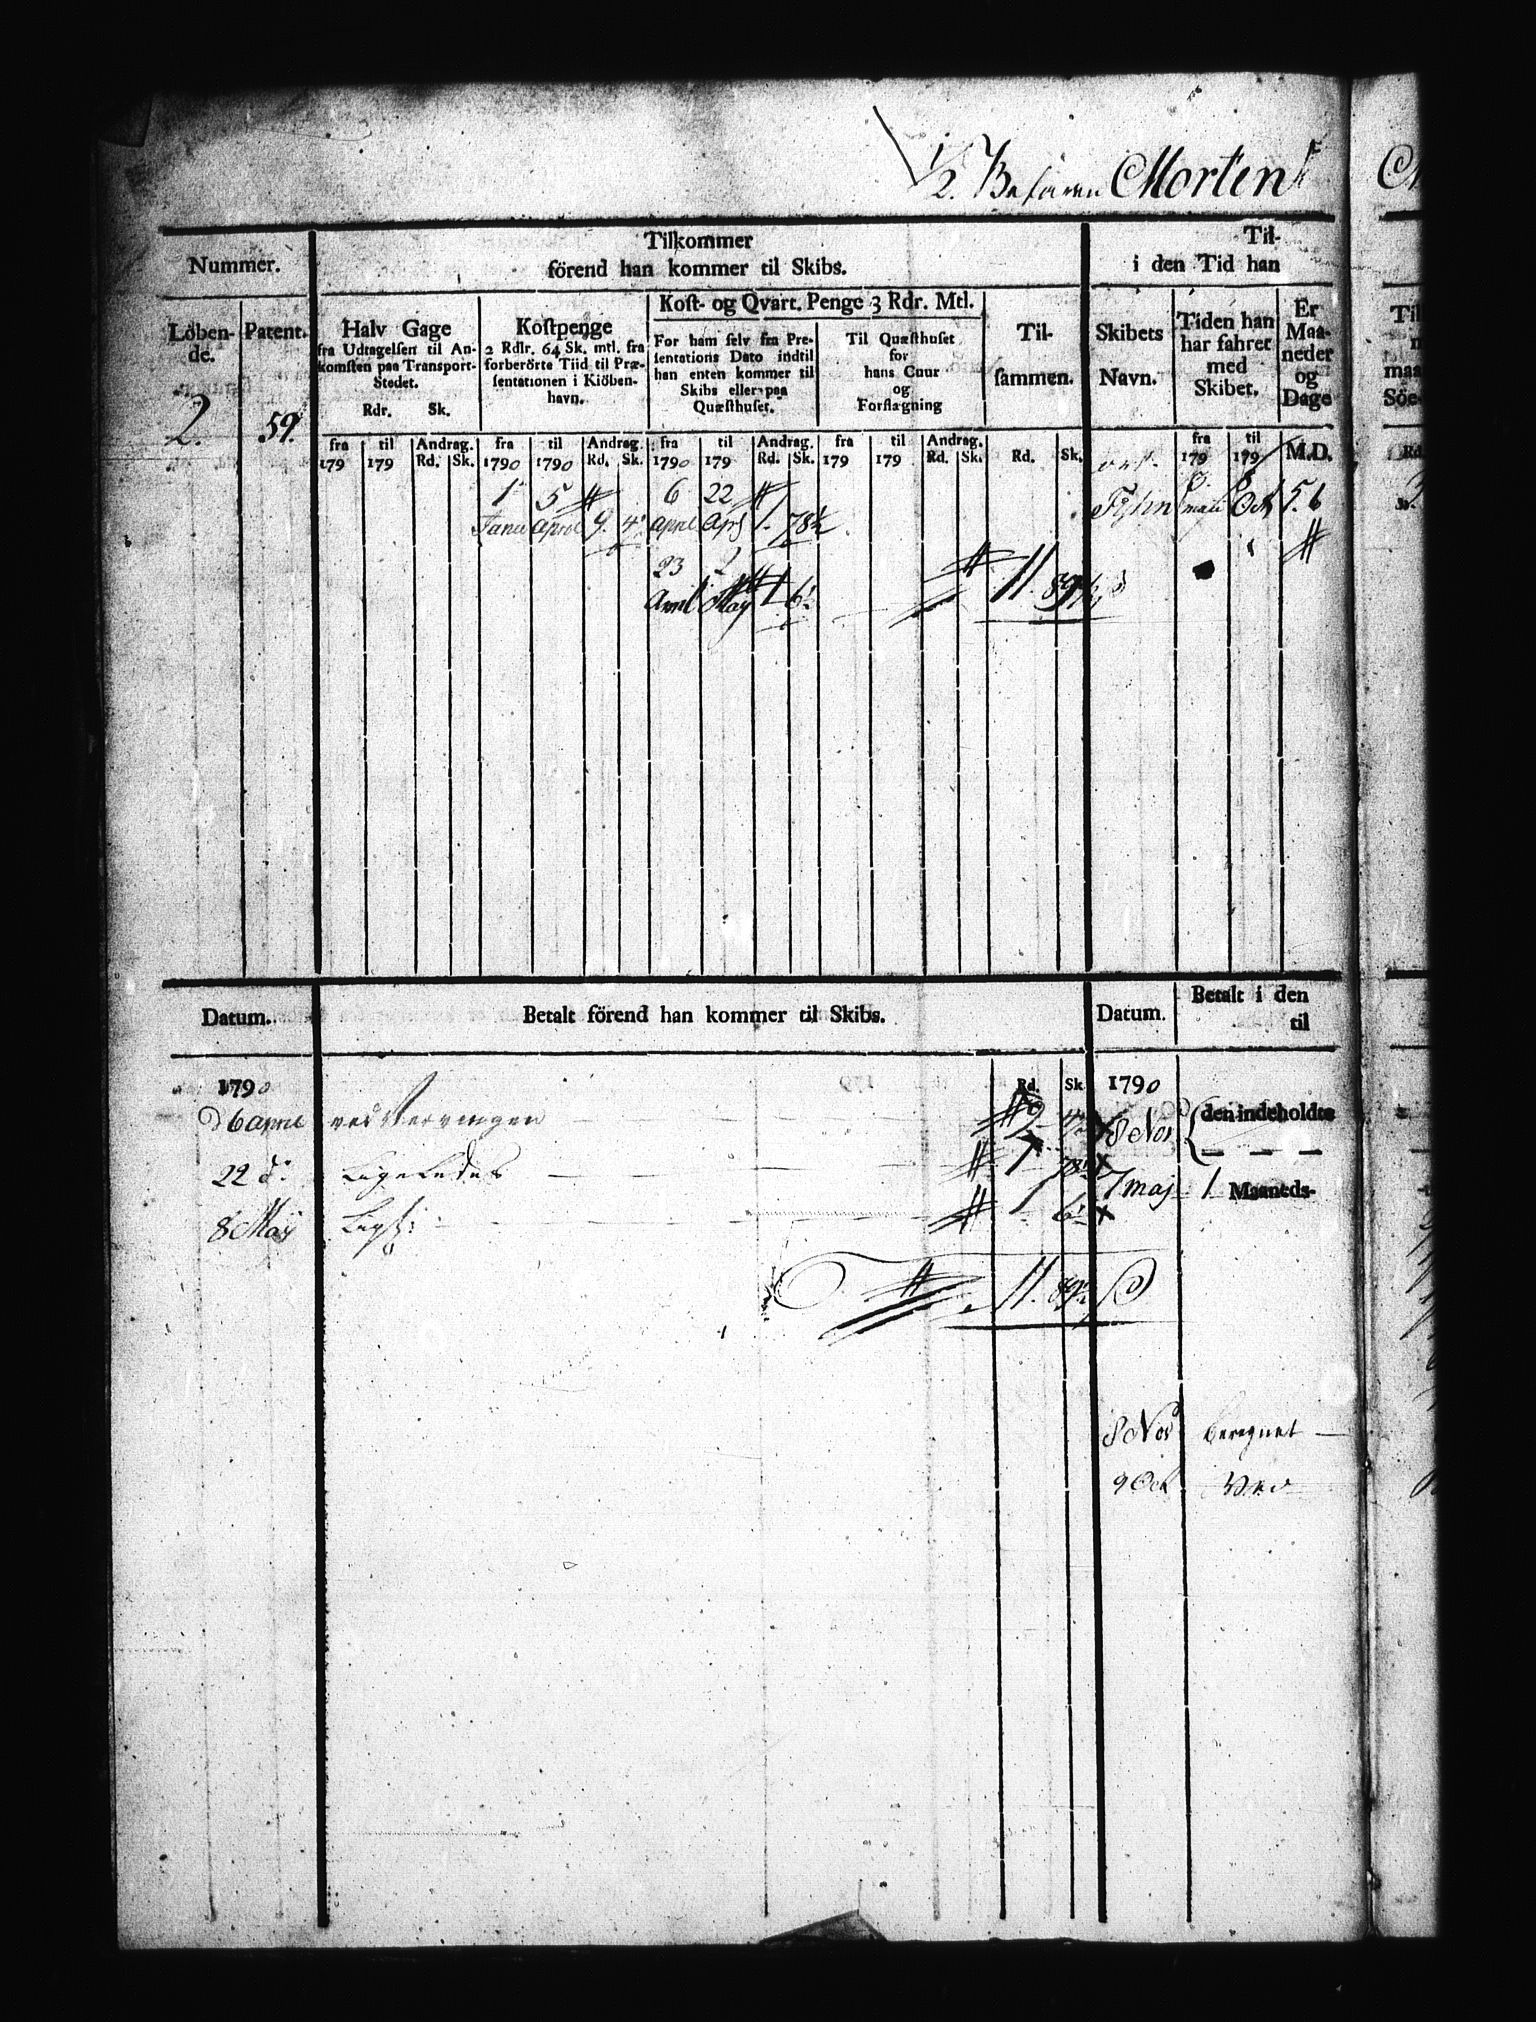 1/2 Befaren Morten
Tilkommer
förend han kommer til Skibs.
Til-
i den Tid han
Nummer.
Löben-
de.
Patent.
Halv Gage
fra Udtagelsen til An-
komsten paa Transport-
Stedet.
Rdr. Sk.
Kostpenge
2 Rdlr. 64 Sk. mtl. fra
forberörte Tiid til Præ-
sentationen i Kiöben-
havn.
Kost- og Qvart. Penge 3 Rdr. Mtl.
For ham selv fra Pre-
sentations Dato indtil
han enten kommer til
Skibs eller paa
Quæsthuset.
Til Quæsthuset
for
hans Cuur
og
Forflægning
Til-
sammen.
Skibets
Navn.
Tiden han
har fahret
med
Skibet.
Er
Maa-
neder
og
Dage
2. 59.
fra til Andrag. fra til Andrag. fra til Andrag. fra til Andrag. fra til
179 179 Rd. Sk. 1790 1790 Rd. Sk. 1790 179 Rd. Sk. 179 179 Rd. Sk. Rd. Sk. 179 179 M.D.
1 5 6 22 8
Janu April 9. 4 April Apr 1. 78½ Fyhn maii Oct 5. 6
23 7
April May 1 6½
11. 89
Datum.
Betalt förend han kommer til Skibs.
Datum.
Betalt i den
til
1790 Rd. Sk. 1790
D 6 April ved Hvervingen 9 4 8 Nov den indeholdte
22 do Ligeledes 1 78½ 7 maj 1 Maaneds-
8 May Ligs: 1 6½
11. 89½
8 Nov beregnet
9 Oct Ved